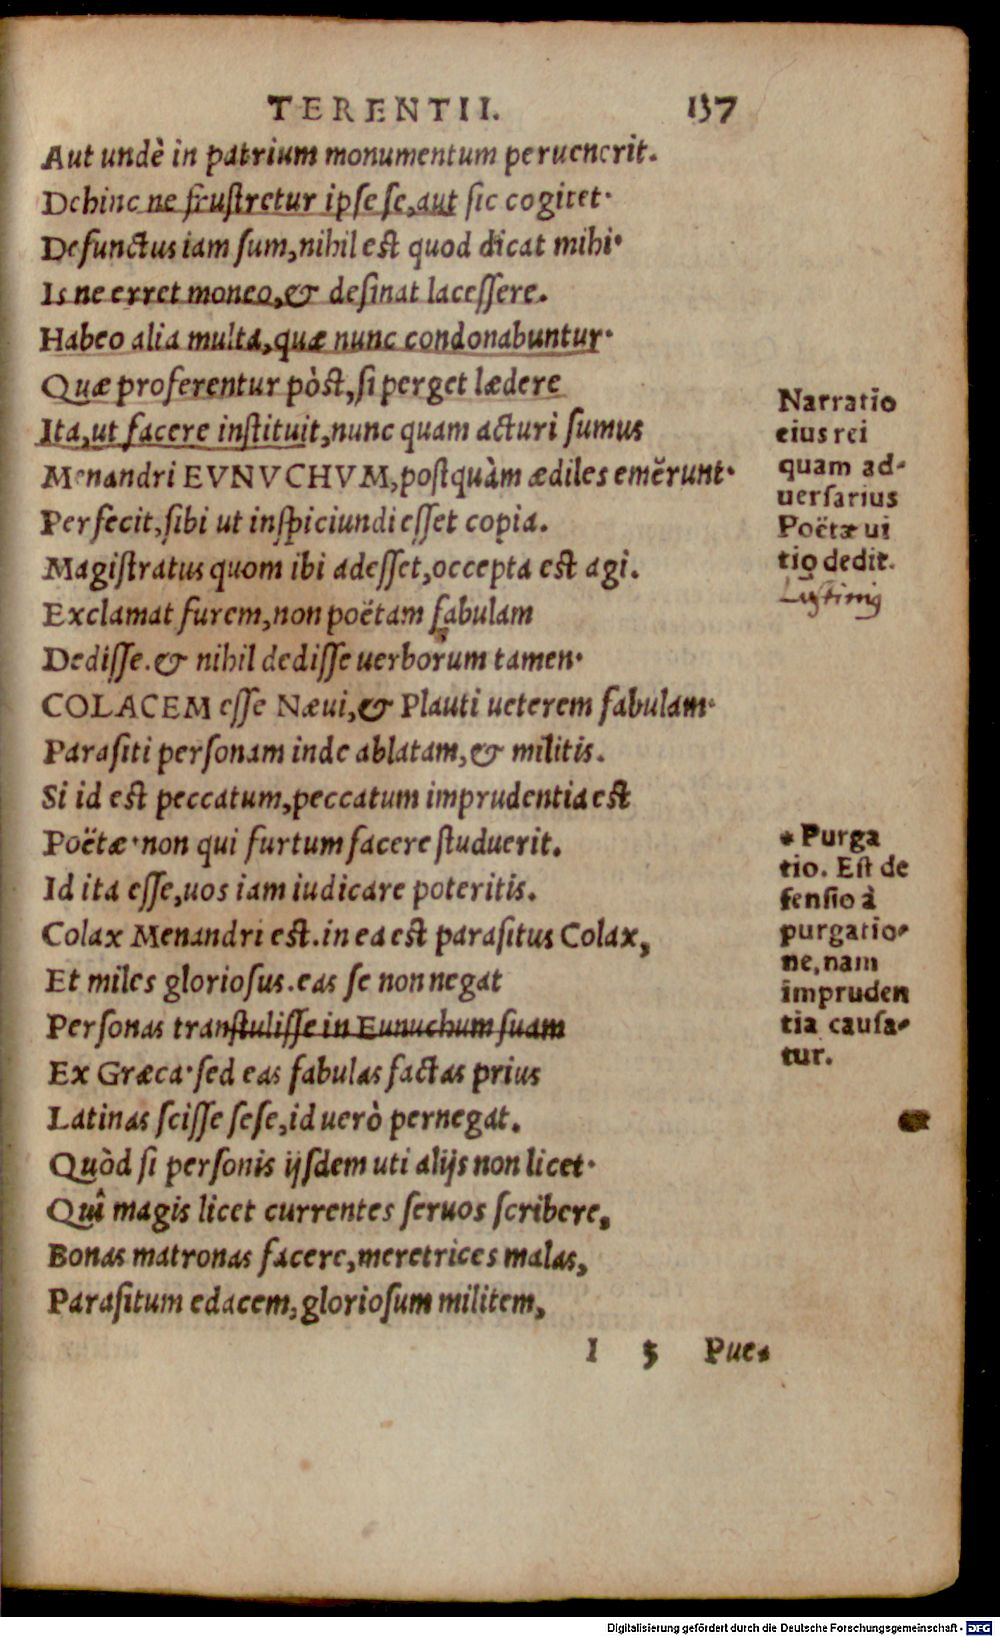 TERENTII. 137
Aut undè in patrium monumentum peruenerit.
Dehinc ne frustretur ipse se, aut sic cogitet·
Defunctus iam sum, nihil est quod dicat mihi·
Is ne erret moneo, & desinat lacessere.
Habeo alia multa, quæ nunc condonabuntur·
Quæ proferentur pòst, si perget lædere
Ita, ut facere instituit, nunc quam acturi sumus
Menandri EVNVCHVM, postquàm ædiles emērunt·
Perfecit, sibi ut inspiciundi esset copia.
Magistratus quom ibi adesset, occepta est agi.
Exclamat furem, non poëtam fabulam
Dedisse. & nihil dedisse uerborum tamen·
COLACEM esse Næui, & Plauti ueterem fabulam·
Parasiti personam inde ablatam, & militis.
Si id est peccatum, peccatum imprudentia est
Poëtæ· non qui furtum facere studuerit.
Id ita esse, uos iam iudicare poteritis.
Colax Menandri est. in ea est parasitus Colax,
Et miles gloriosus. eas se non negat
Personas transtulisse in Eunuchum suam
Ex Græca· sed eas fabulas factas prius
Latinas scisse sese, id uerò pernegat.
Quòd si personis ijsdem uti alijs non licet·
Quî magis licet currentes seruos scribere,
Bonas matronas facere, meretrices malas,
Parasitum edacem, gloriosum militem,
I 5 Pue-
Narratio
eius rei
quam ad-
uersarius
Poëtæ ui
tio dedit.
* Purga
tio. Est de
fensio à
purgatio-
ne, nam
impruden
tia causa-
tur.
Digitalisierung gefördert durch die Deutsche Forschungsgemeinschaft - DFG